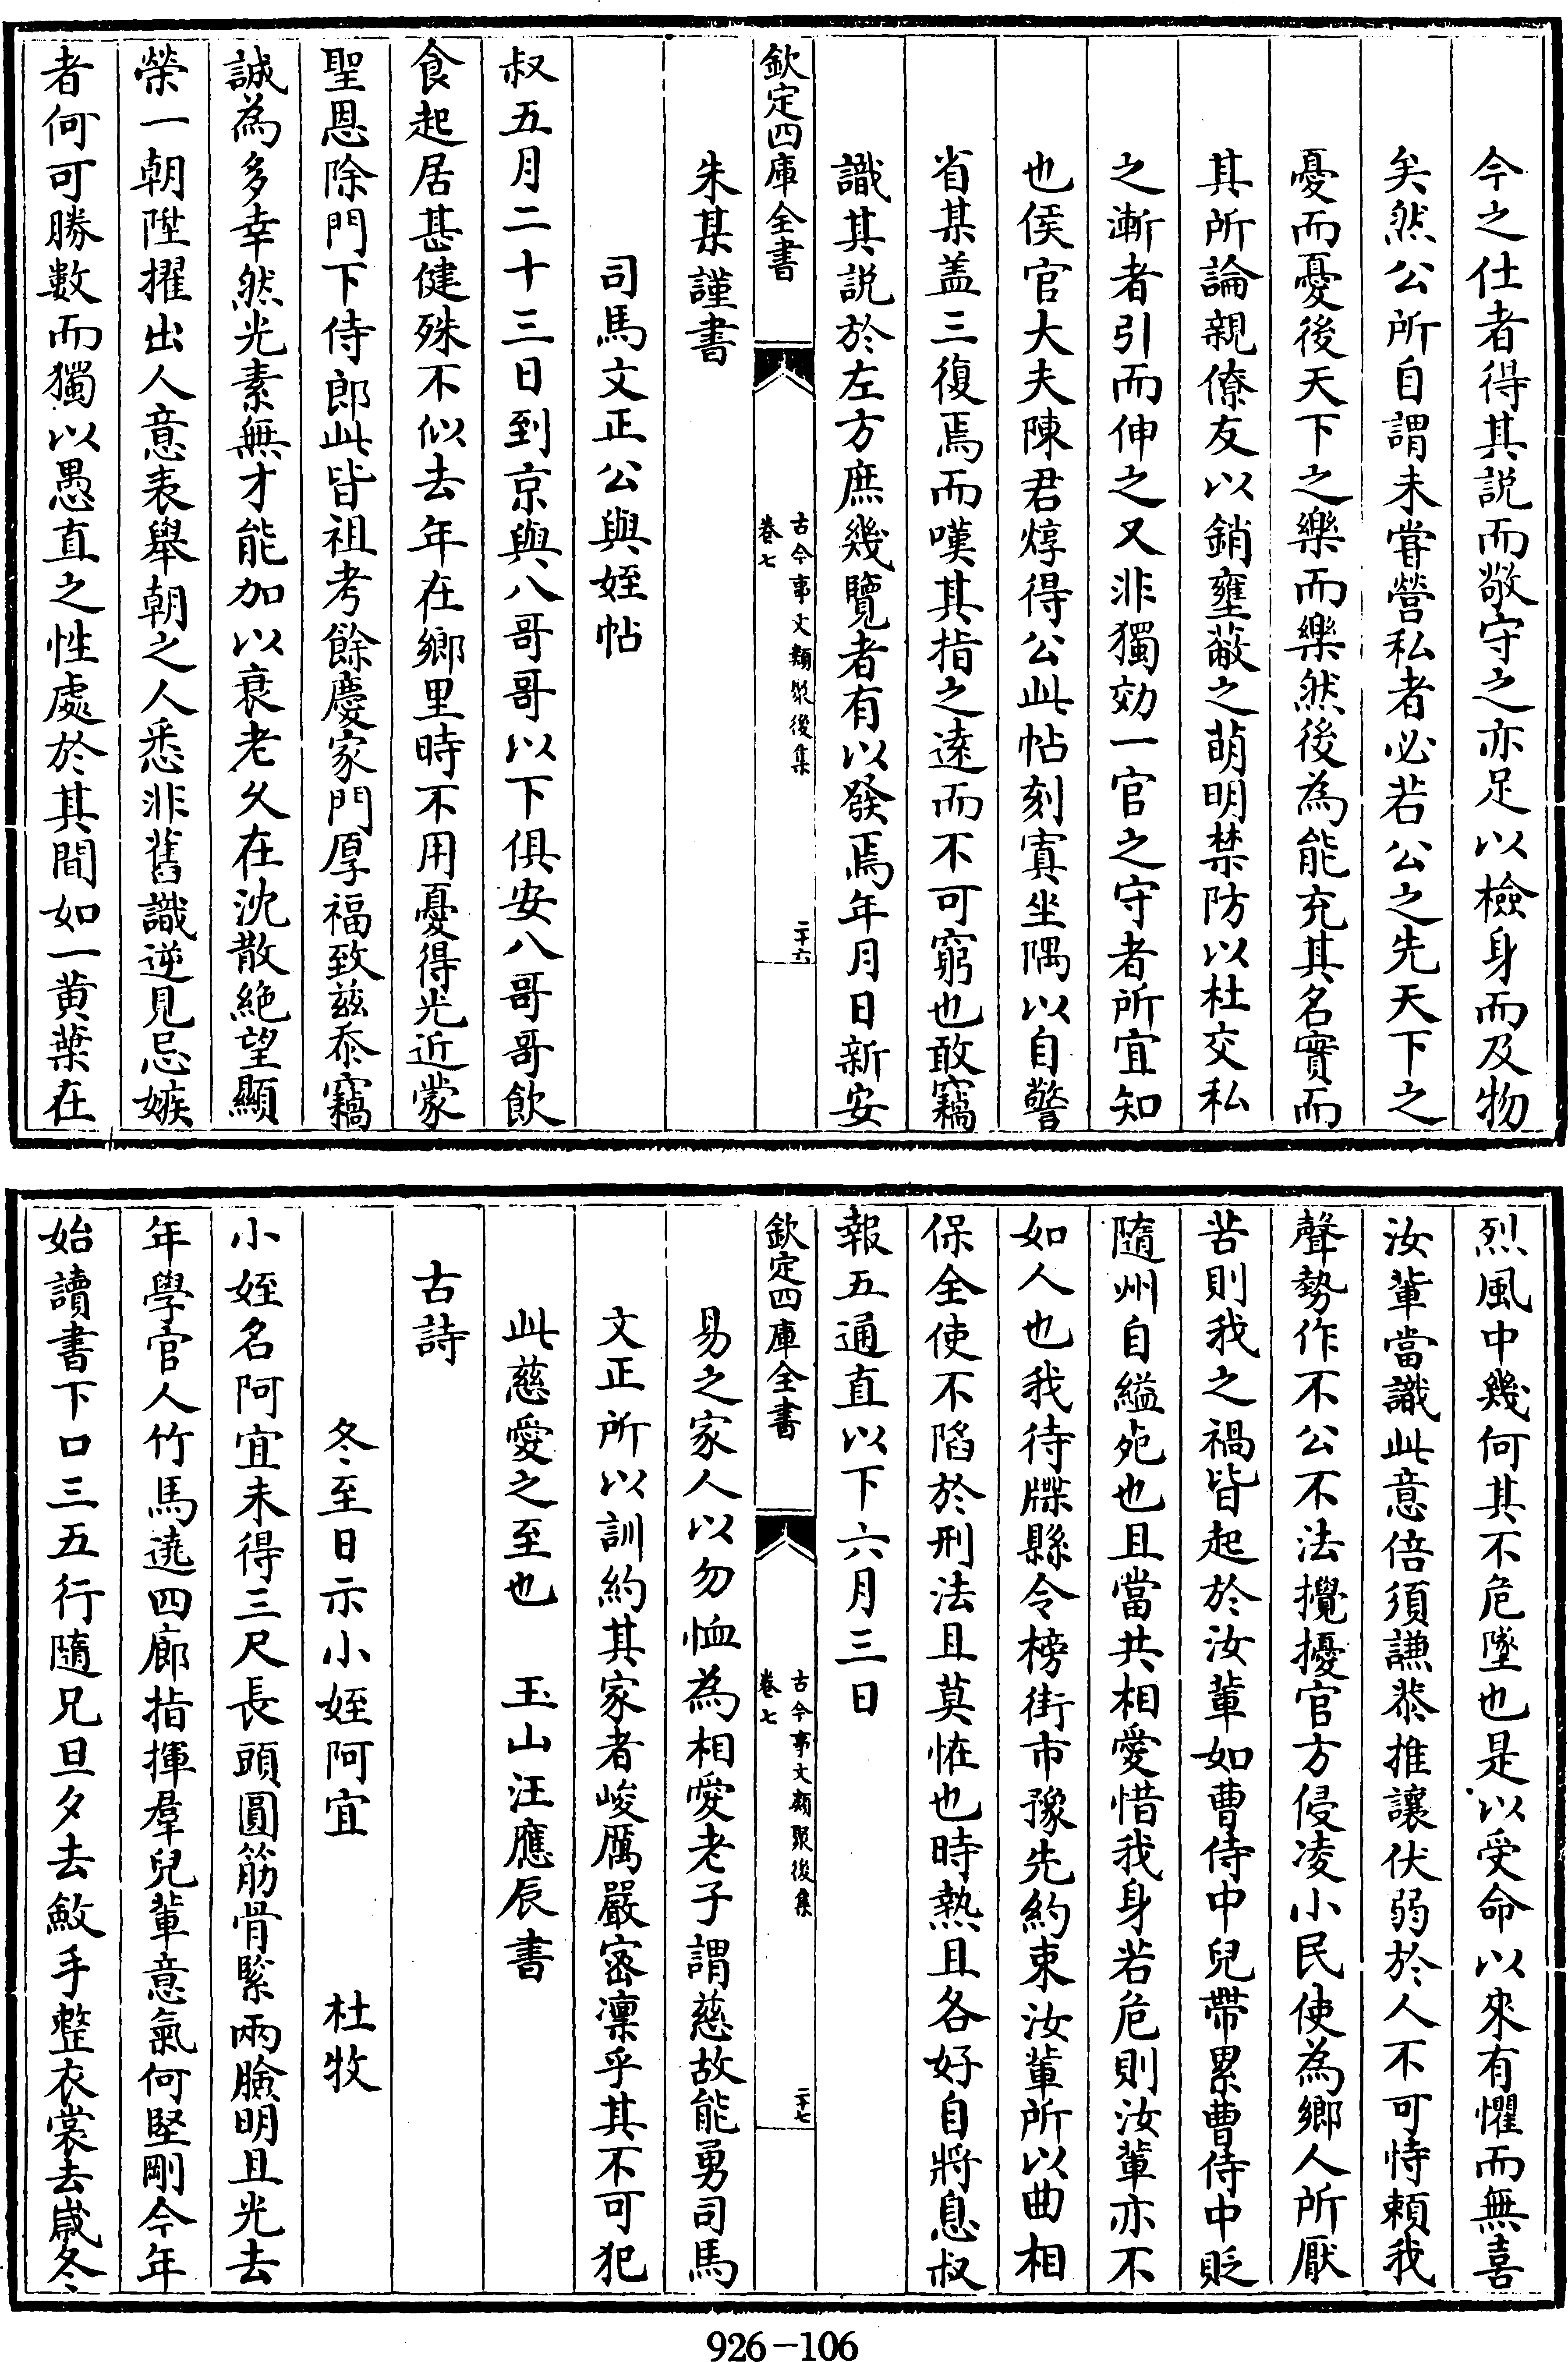 今之仕者得其説而敬守之亦足以檢身而及物
矣然公所自謂未甞營私者必若公之先天下之
憂而憂後天下之樂而樂然後為能充其名實而
其所論親僚友以銷壅蔽之萌明禁防以杜交私
之漸者引而伸之又非獨効一官之守者所宜知
也侯官大夫陳君焞得公此帖刻寘坐隅以自警
省某盖三復焉而嘆其指之逺而不可窮也敢竊
識其説於左方庶幾覽者有以發焉年月日新安
欽定四庫全書
古今事文類聚後集
卷七
二十六
朱某謹書
司馬文正公與姪帖
叔五月二十三日到京與八哥哥以下俱安八哥哥飲
食起居甚健殊不似去年在鄉里時不用憂得光近蒙
聖恩除門下侍郎此皆祖考餘慶家門厚福致兹忝竊
誠為多幸然光素無才能加以衰老久在沈散絶望顯
榮一朝陞擢出人意表舉朝之人悉非舊識逆見忌嫉
者何可勝數而獨以愚直之性處於其間如一黄葉在
烈風中幾何其不危墜也是以受命以來有懼而無喜
汝輩當識此意倍須謙恭推讓伏弱於人不可恃頼我
聲勢作不公不法攪擾官方侵凌小民使為鄉人所厭
苦則我之禍皆起於汝輩如曹侍中兒帶累曹侍中貶
隨州自縊死也且當共相愛惜我身若危則汝輩亦不
如人也我待牒縣令榜街市豫先約束汝輩所以曲相
保全使不陷於刑法且莫恠也時熱且各好自將息叔
報五通直以下六月三日
欽定四庫全書
古今事文類聚後集
卷七
二十七
易之家人以勿恤為相愛老子謂慈故能勇司馬
文正所以訓約其家者峻厲嚴宻凛乎其不可犯
此慈愛之至也 玉山汪應辰書
古詩
冬至日示小姪阿宜 杜牧
小姪名阿宜未得三尺長頭圓筋骨緊兩臉明且光去
年學官人竹馬遶四廊指揮羣兒輩意氣何堅剛今年
始讀書下口三五行隨兄旦夕去斂手整衣裳去嵗冬
926-106